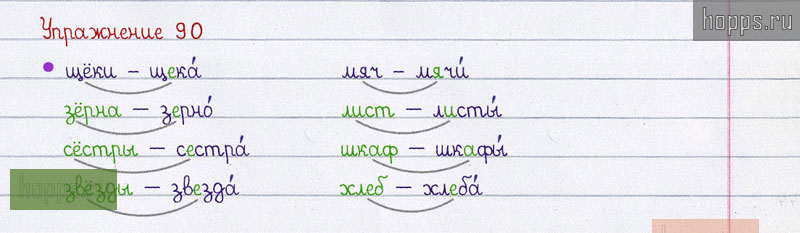 hopps.ru
Упражнение 90
щёки – щека́ мяч – мячи́
зёрна – зерно́ лист – листы́
сёстры – сестра́ шкаф – шкафы́
звёзды – звезда́ хлеб – хлеба́
hopps